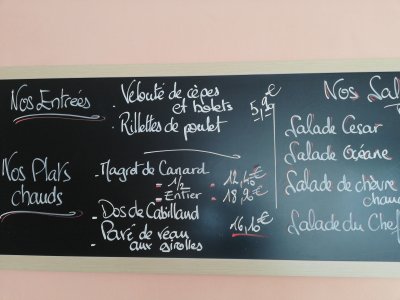 Nos Entrées
- Velouté de cèpes
et bolets
- Rillettes de poulet
Nos Plats
chauds
- Magret de Canard
= 1/2 =
= Entier =
- Dos de Cabilland
- Pavé de veau
aux girolles
16,10€
Nos Sal
Salade César
Salade Océane
Salade de chèvre
chau
Salade du Chef